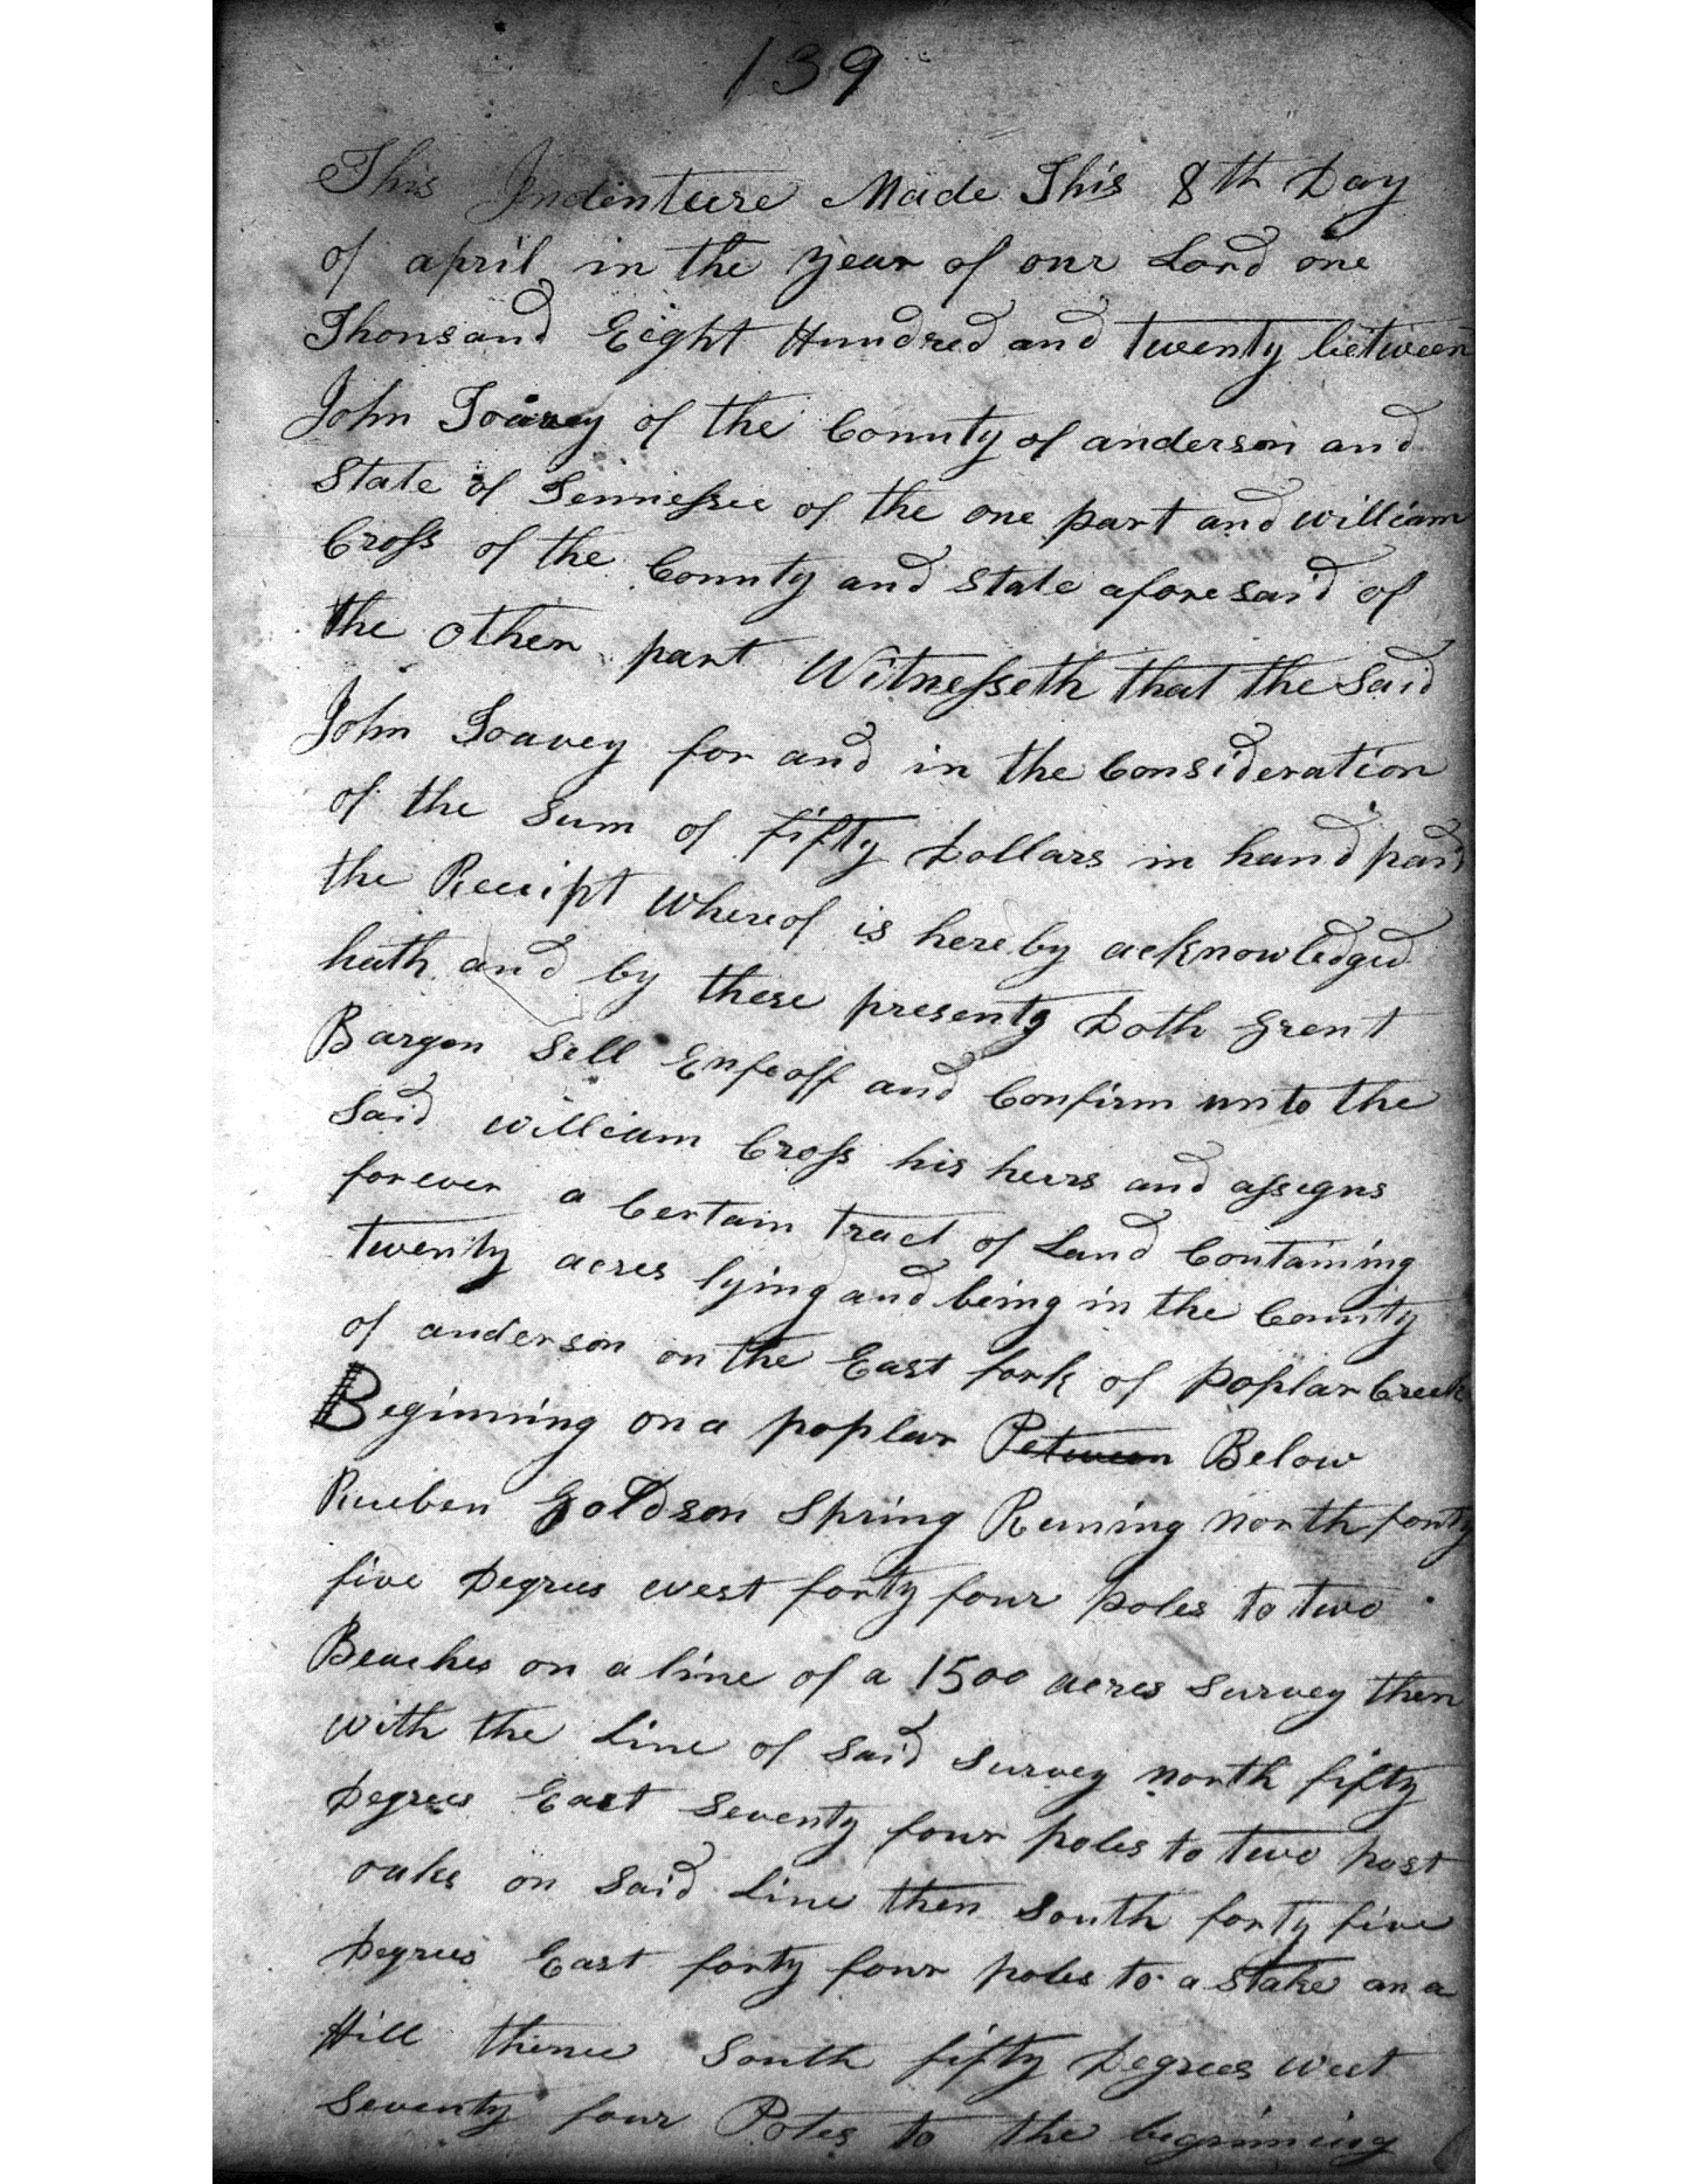 139
This Indenture Made This 8th Day
of april in the year of our Lord one
Thousand Eight Hundred and twenty between
John Toavey of the County of anderson and
State of Tennessee of the one part and william
Cross of the County and State aforesaid of
the other part Witnesseth that the Said
John Toavey for and in the Consideration
of the Sum of fifty Dollars in hand paid
the Receipt whereof is hereby acknowledged
hath and by these presents Doth Grent
Bargen Sell Enfeoff and Confirm unto the
Said william Cross his heirs and assigns
forever a Certain tract of Land Containing
twenty acres lying and being in the County
of anderson on the East fork of Poplar Creek
Beginning on a poplar Petween Below
Rueben Goldson Spring Runing North forty
five Degrees west forty four poles to two
Beaches on a line of a 1500 acres Survey then
with the Line of Said Survey north fifty
Degrees East Seventy four poles to two post
oaks on Said Line then South forty five
Degrees East forty four poles to a Stake on a
Hill thence South fifty Degrees west
Seventy four Poles to the beginning